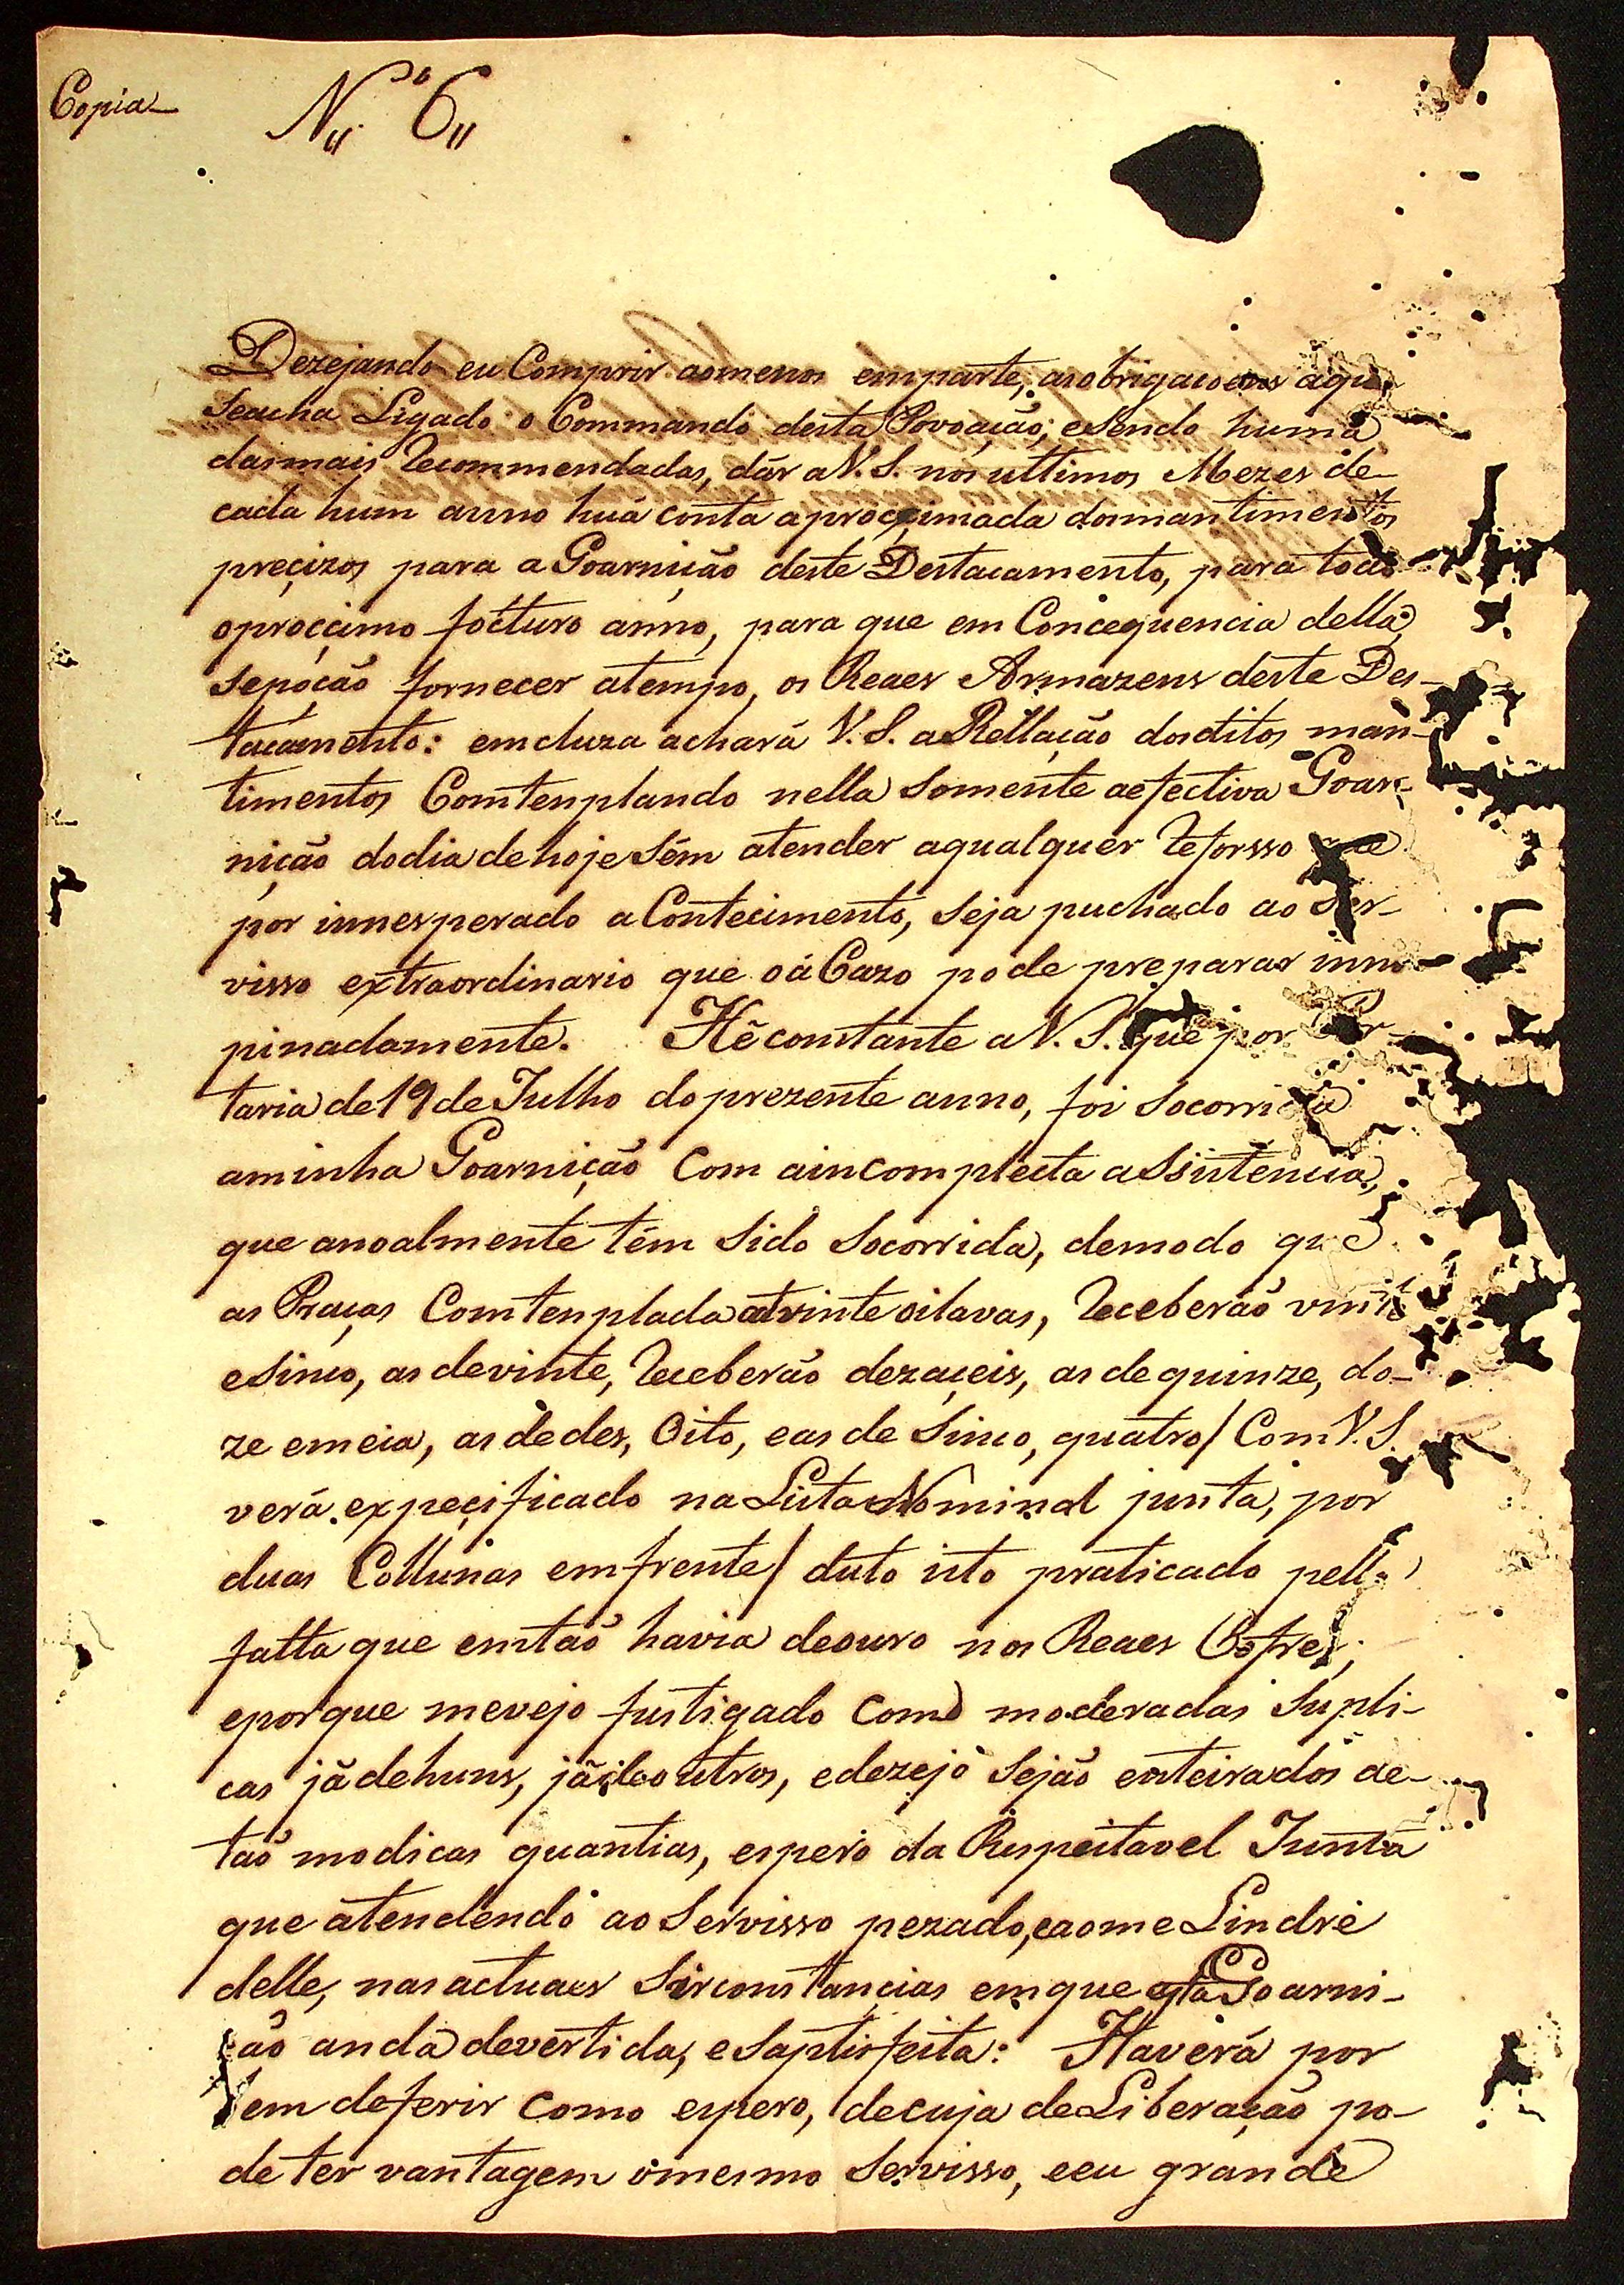 Copia
N.º 6
Dezejando eu Comprir aomenos emparte, as obrigacoens aque
seacha Ligado o Commando desta Povoação; esendo huma
dasmais recommendadas, dár aV. S. nos ultimos Mezes de
cada hum anno huá conta aproccimada dosmantimentos
precizos para a Goarnição deste Destacamento, para todo
oproccimo focturo anno, para que em Concequencia della
sepoção fornecer atempo, os Reaes Armazens deste Des-
tacamento: emcluza achará V. S. aRellação dosditos man-
timentos Comtenplando nella somente aefectiva Goar-
nição dodia dehoje sém atender aqualquer reforsso que
por innesperado aContecimento, seja puchado ao Ser-
visso extraordinario que oáCazo pode preparar inno-
pinadamente. Hé constante aV. S. que por Por-
taria de 19 de Julho do prezente anno, foi socorrida
aminha Goarnição Com aincomplecta aSsistencia,
que anoalmente tém sido socorrida, demodo que
as Praças Comtenplada atrinte oitavas, receberão vinte
esinco, as devinte, receberão dezaceis, as de quinze, do-
ze emeia, as dedes, Oito, eas de sinco, quatro / Com V. S.
verá expecificado na Lista Nominal junta, por
duas Collunas emfrente / duto isto praticado pella
falta que emtaõ havia deouro nos Reaes Cofres;
eporque mevejo fustigado com moderadas supli-
cas já dehuns, já deoutros, edezejo sejão enteirados de
taõ modicas quantias, espero da Respeitavel Junta
que atendendo ao Servisso pezado, eaome Lindre
delle, nasactuaes Sirconstancias emque esta Goarni-
ção anda devertida, eSaptisfeita: Haverá por
bem deferir como espero, decuja deLiberação po-
de ter vantagem omesmo Servisso, eeu grande